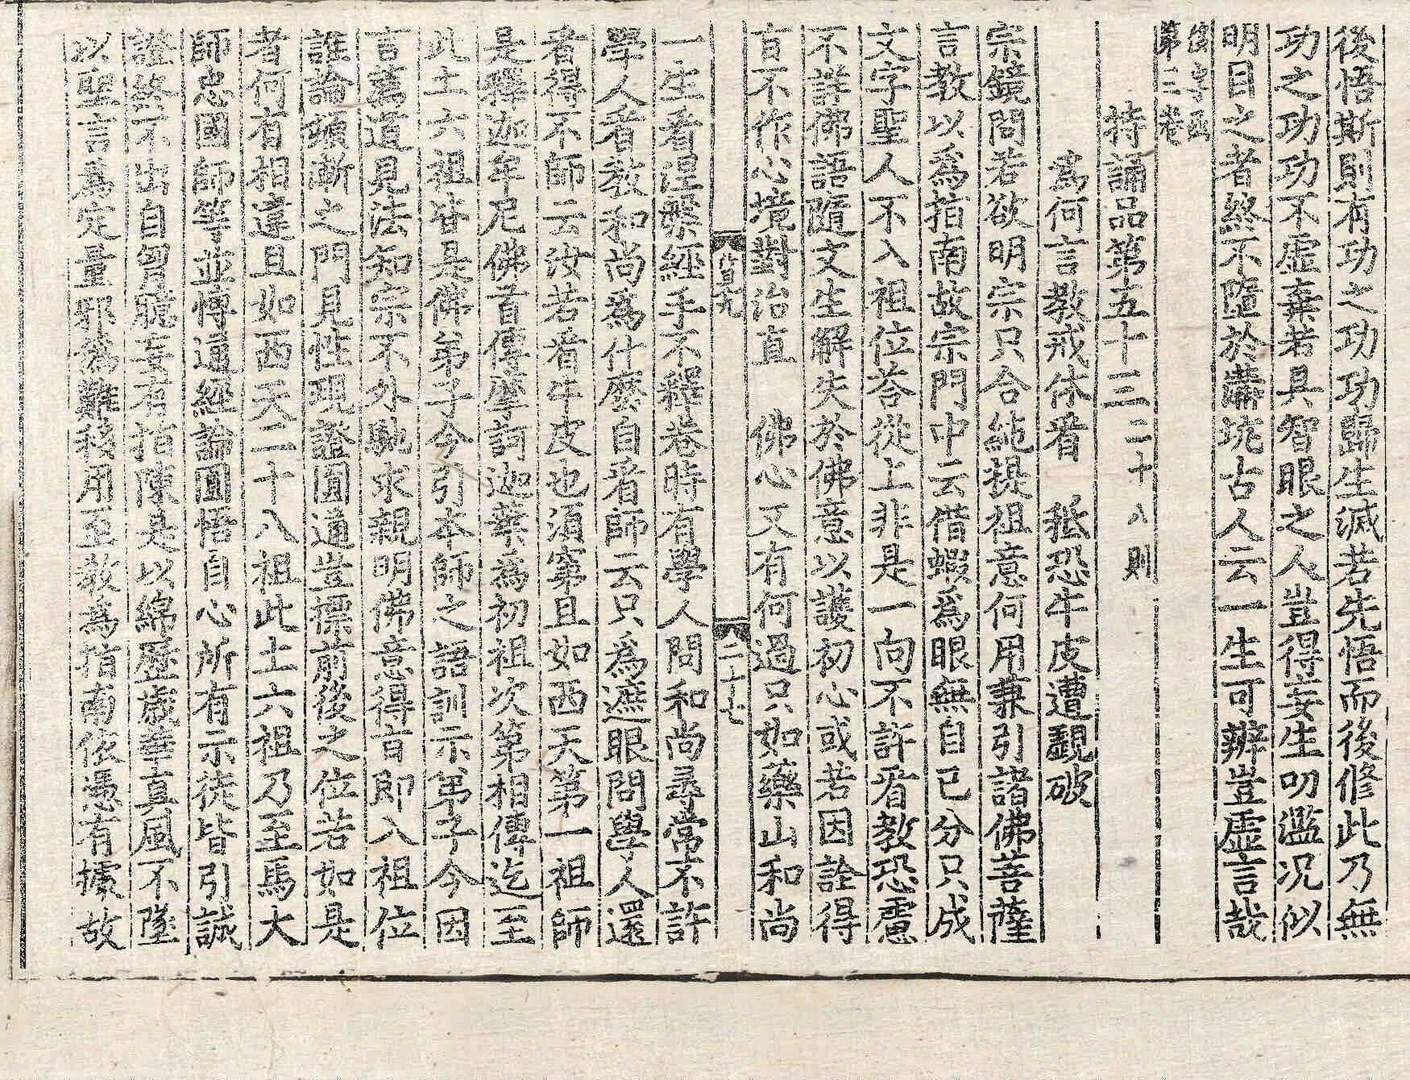 後悟斯則有功之功功歸生滅若先悟而後修此乃無
功之功功不虛棄若具智眼之人豈得妄生叨濫况似
明目之者終不墮於溝坑古人云一生可辦豈虛言哉
第三卷
持誦品第五十三 二十八則
爲何言教戒休看 秪恐牛皮遭覷破
宗鏡問若欲明宗只合純提祖意何用兼引諸佛菩薩
言教以爲指南故宗門中云借蝦爲眼無自己分只成
文字聖人不入祖位荅從上非是一向不許看教恐慮
不詳佛語隨文生解失於佛意以護初心或若因詮得
旨不作心境對治直 佛心又有何過只如藥山和尚
二十七
一生看涅槃經手不釋卷時有學人問和尚尋常不許
學人看教和尚爲什麼自看師云只爲遮眼問學人還
看得不師云汝若看牛皮也須穿且如西天第一祖師
是釋迦牟尼佛首傳摩訶迦葉爲初祖次第相傳迄至
此土六祖皆是佛弟子今引本師之語訓示弟子令因
言薦道見法知宗不外馳求親明佛意得旨即入祖位
誰論頓漸之門見性現證圓通豈標前後之位若如是
者何有相違且如西天二十八祖此土六祖乃至馬大
師忠國師等並博通經論圓悟自心所有示徒皆引誠
證終不出自胷臆妄有指陳是以綿歷歲華真風不墜
以聖言爲定量邪僞難移用至教爲指南依憑有據故